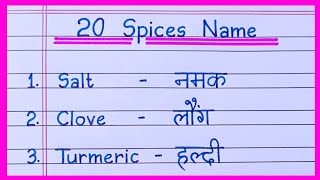 20 Spices Name
1. Salt - नमक
2. Clove - लौंग
3. Turmeric - हल्दी